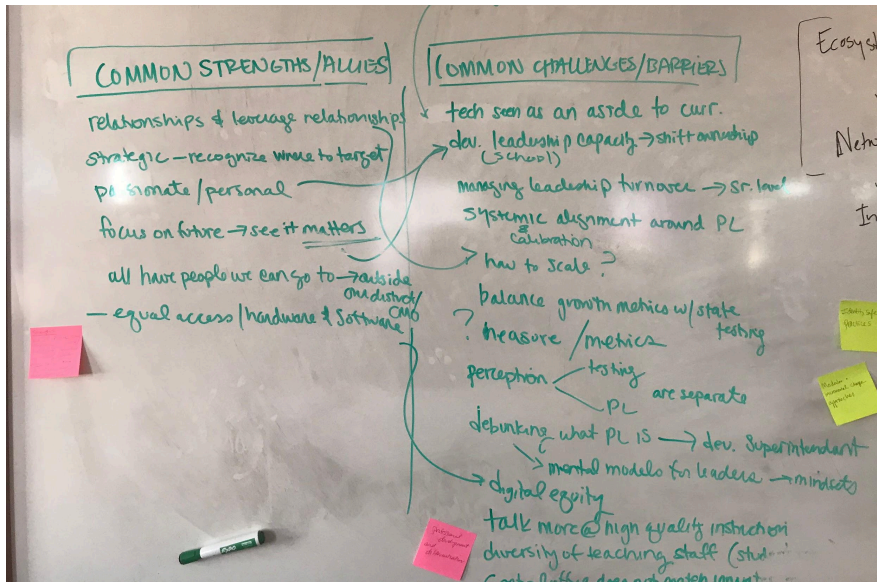 COMMON STRENGTHS/ALLIES
relationships & leverage relationships
strategic — recognize where to target
passionate/personal
focus on future → see it matters
all have people we can go to → outside
our district/
CMO
— equal access/hardware & software
COMMON CHALLENGES/BARRIERS
tech seen as an aside to curr.
dev. leadership capacity → shift ownership
(school)
managing leadership turnover → Sr. level
systemic alignment around PL
&
calibration
how to scale?
balance growth metrics w/ state
testing
? measure/metrics
perception
testing
PL
are separate
debunking what PL IS → dev. Superintendant
mental models for leaders → mindsets
digital equity
talk more @ high quality instruction
diversity of teaching staff (stud
Ecosyst
Netw
In